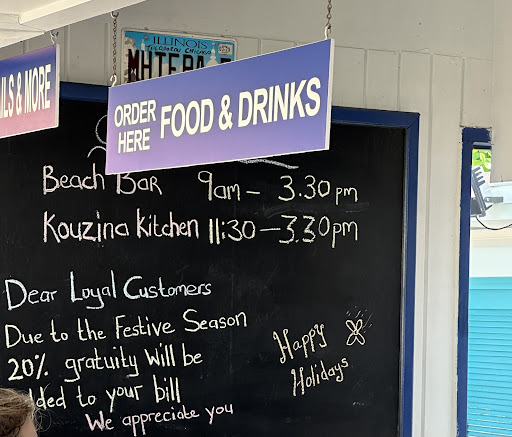 ILLINOIS
ILS & MORE
ORDER HERE FOOD & DRINKS
Beach Bar 9am – 3.30pm
Kouzina Kitchen 11:30 – 3.30pm
Dear Loyal Customers
Due to the Festive Season
20% gratuity will be
dded to your bill
We appreciate you
Happy
Holidays